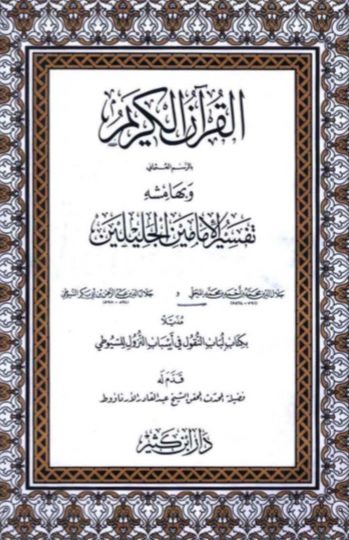 القرآن الكريم
بالرسم العثماني
وبهامشه
تفسير الإمامين الجليلين
جلال الدين محمد بن أحمد بن محمد المحلي و جلال الدين عبد الرحمن بن أبي بكر السيوطي
مذيلاً
بكتاب لباب النقول في أسباب النزول للسيوطي
قدم له
فضيلة المحدث المحقق الشيخ عبد القادر الأرناؤوط
دار ابن كثير